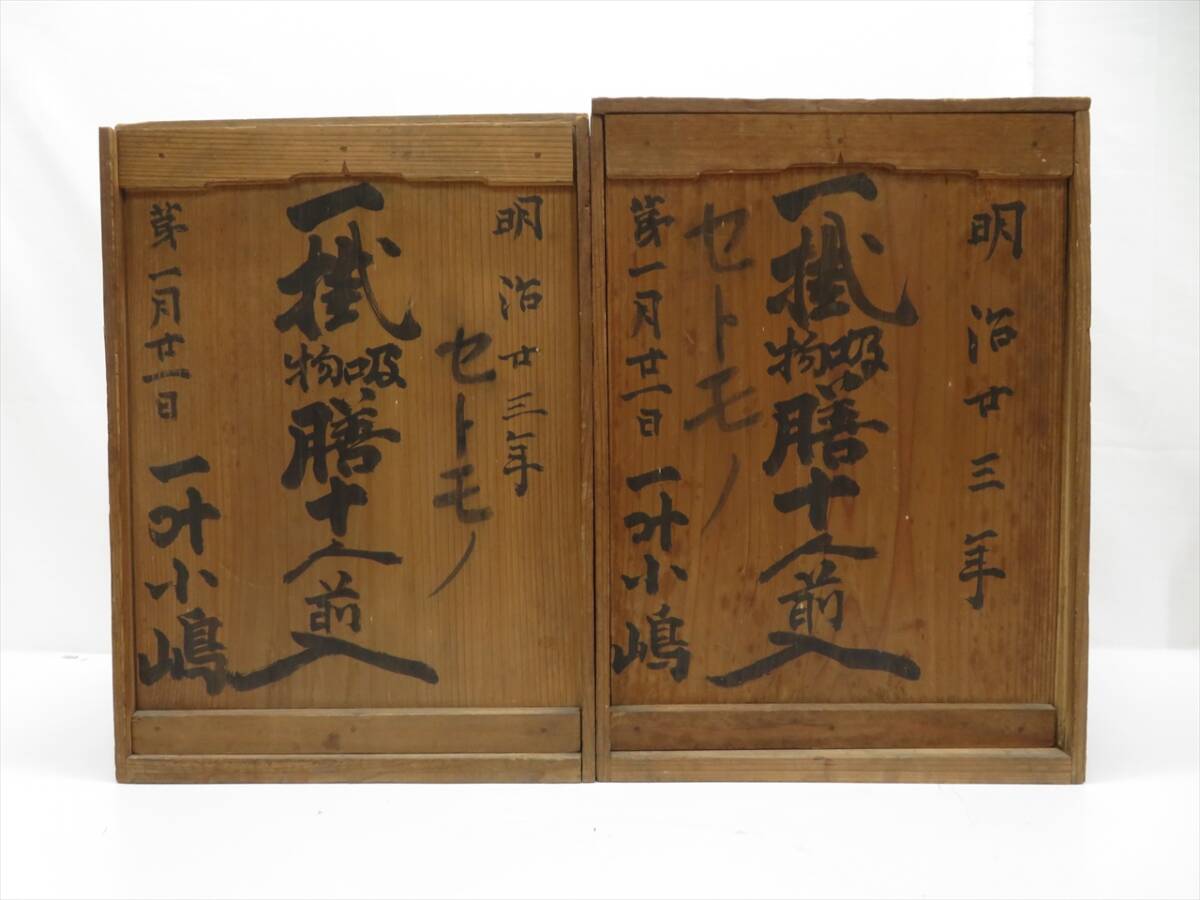 明治廿三年
セトモノ
一掛吸物膳十人前入
第一月廿一日
一叶小嶋
明治廿三年
一掛吸物膳十人前入
セトモノ
第一月廿一日
一叶小嶋